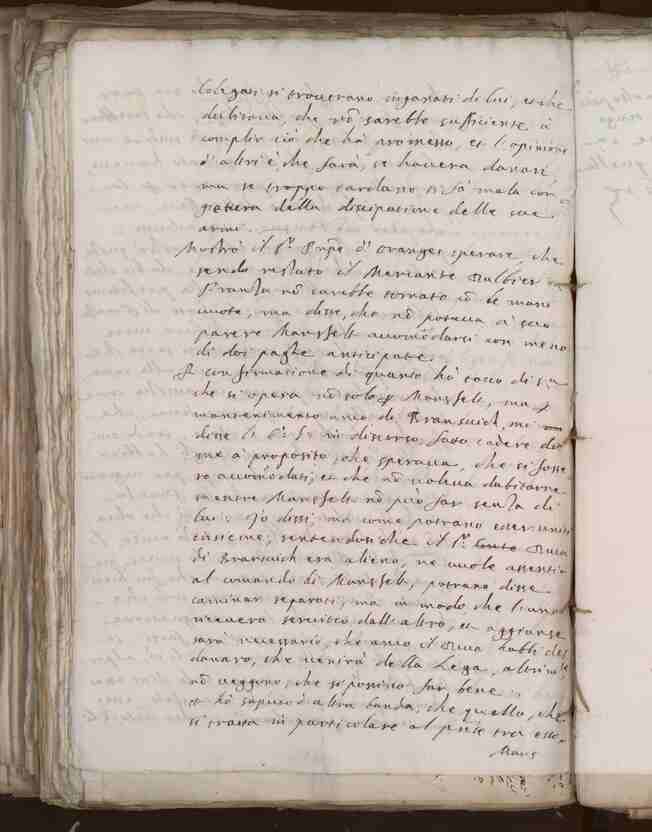 Colegati si troverano inganati di lui, et che
dubitava, che nõ sarebbe sufficiente à
complir ciò che hà promesso, et l'opinione
d'altri è, che farà, se haverà danari
ma se troppo tardano si fà mala con
giettura della dissipatione delle sue
armi.
Mostrò il Sr Prñpe d'Oranges sperare, che
sendo restato il Mercante Calbier
Franza nõ sarebbe tornato cõ le mani
vuote, ma disse, che nõ poteva à suo
parere Mansfelt accomodarsi con meno
di doi paghe anticipate.
A confirmatione di quanto hò tocco di su
che si opera nõ solo p Mansfelt, ma p
mantenimento anco di Bransuich, mi
disse S. Ec. in discorso fatto cadere da
me à proposito, che sperava, che si fosse
ro accomodati; et che nõ voleva dubitarne
mentre Mansfelt nõ può far senza di
lui. Io dissi, ma come potrano esser uniti
insieme, sentendosi che il Sr Duca
di Bransuich era alieno, ne vuole assentir
al comando di Mansfelt, potrano disse
caminar separati, ma in modo che l'uno
riceverà servitio dall'altro, et aggionse
sarà necessario, che anco il Duca habbi del
danaro, che venirà della Lega, altrimte
nõ veggono, che si possino far bene.
et hò saputo d'altra banda, che quello, che
si tratta in particolare al pnte tra esso
Mans